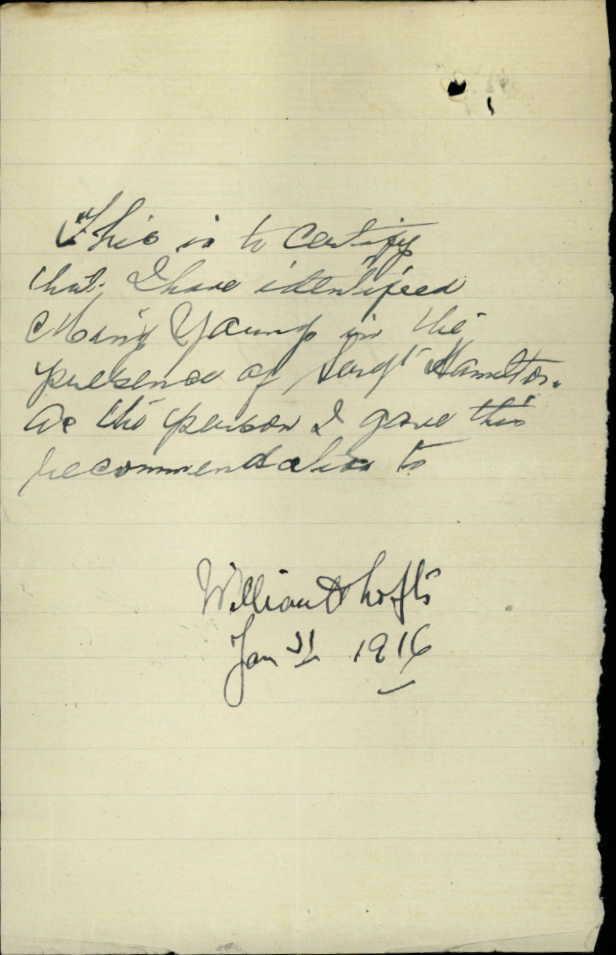 This is to certify
that I have identified
Young in the
presence of Sergt Hamilton.
As the person I gave this
recommendation to
William
Jan 31 1916